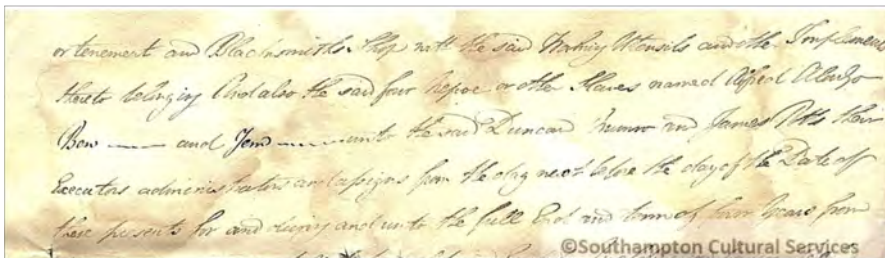 or tenement and Blacksmiths Shop with the said Working Utensils and other Implements
thereto belonging And also the said four Negroe or other Slaves named Alfred
Bow and unto the said Duncan Munro and James Potts their
Executors administrators and assigns from the day next before the day of the Date of
these presents for and during and unto the full End and term of four Years from
©Southampton Cultural Services